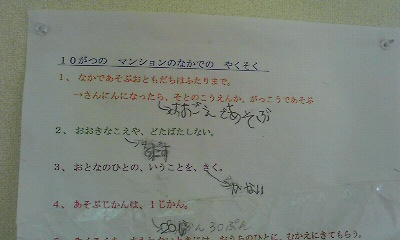 10がつの マンションのなかでの やくそく
1、なかであそぶおともだちはふたりまで。
→さんにんになったら、そとのこうえんか、がっこうであそぶ
おおごえ であそぶ
2、おおきなこえや、どたばたしない。
3、おとなのひとの、いうことを、きく。
かない
4、あそぶじかんは、1じかん。
かん30ぷん